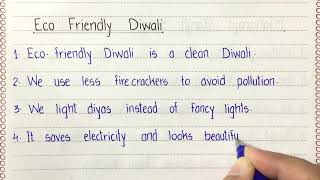 Eco Friendly Diwali
1. Eco-friendly Diwali is a clean Diwali.
2. We use less firecrackers to avoid pollution.
3. We light diyas instead of fancy lights.
4. It saves electricity and looks beautifu